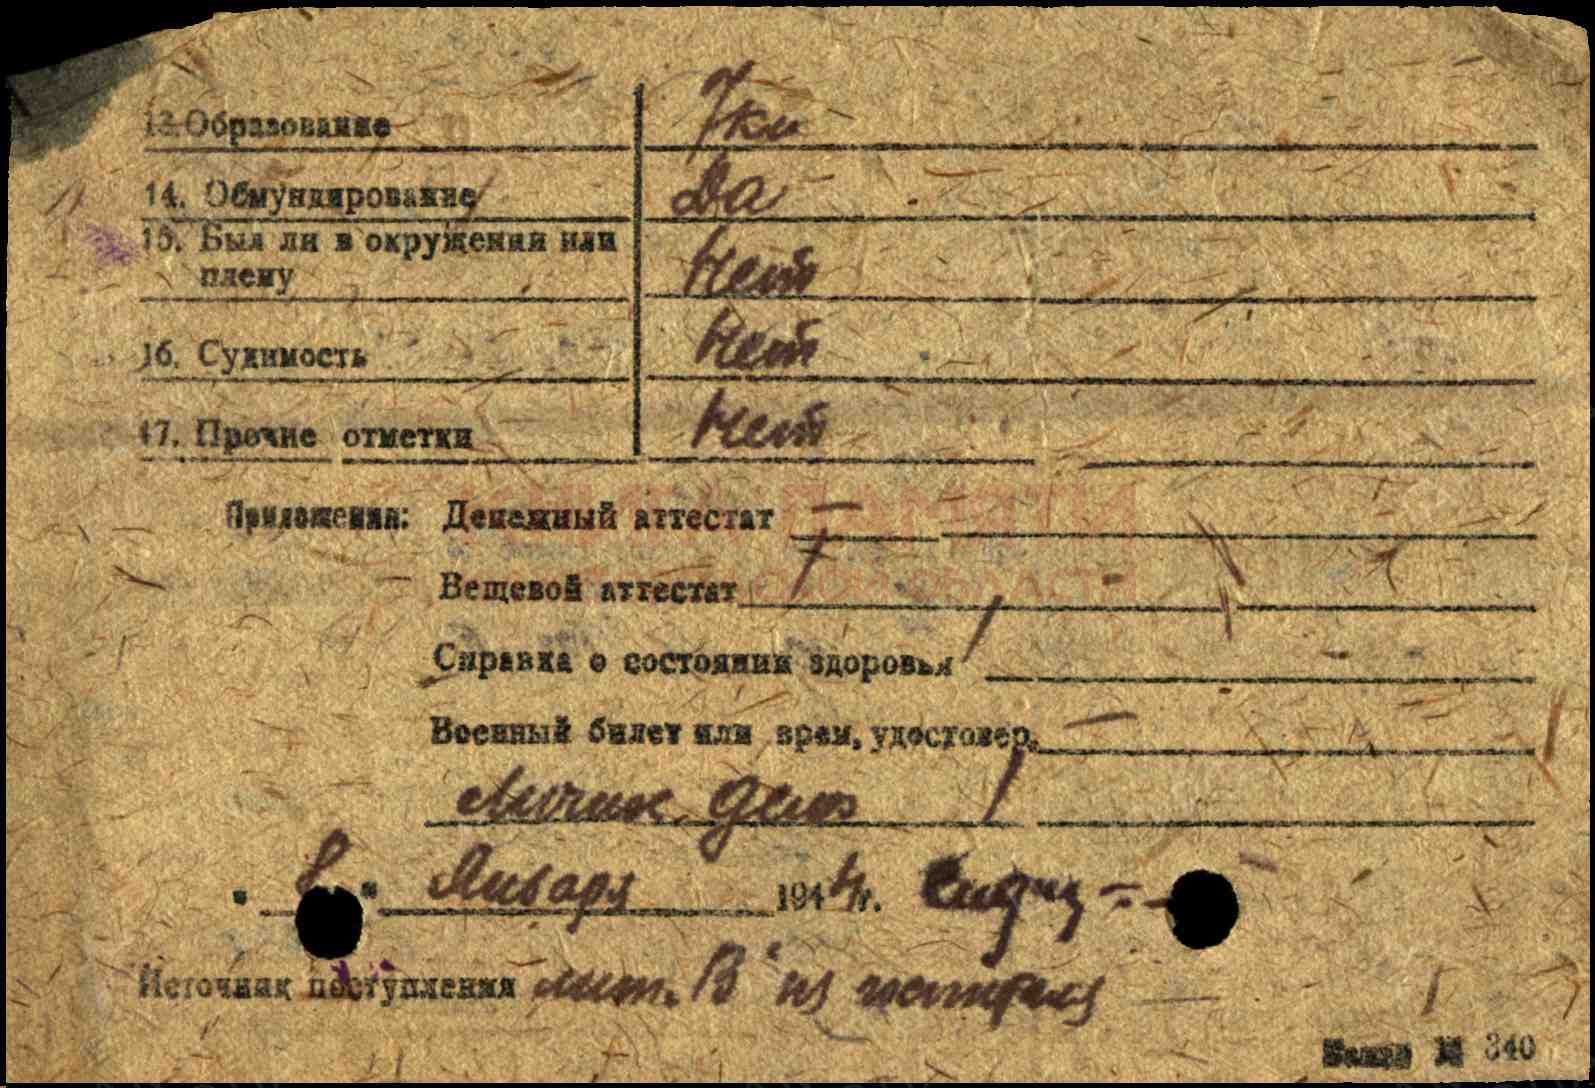 13. Образование 7 кл
14. Обмундирование Да
15. Был ли в окружении или
плену Нет
16. Судимость Нет
17. Прочие отметки Нет
Приложения: Денежный аттестат —
Вещевой аттестат
Справка о состоянии здоровья
Военный билет или врем. удостовер. —
" " Января 1944 г.
Источник поступления лит. В" из госпиталя
№ 340